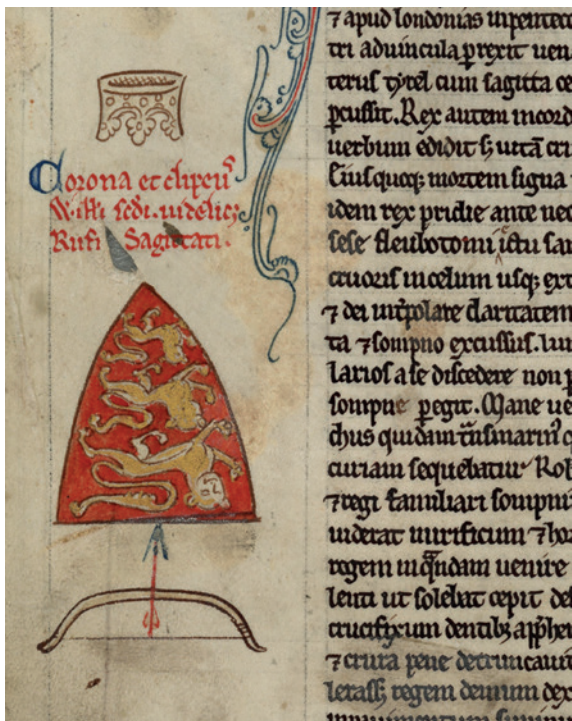 Corona et clipeuˢ
W. uidelicꝫ
Rufi Sagittati.
⁊ apud londonias inpenteco
tri aduincula ꝑrexit uen
terus tyrel cum sagitta ce
ꝑcussit. Rex autem incord
uerbum edidit sꝫ uitā cru
Eiusquoqꝫ mortem signa
idem rex pridie ante nec
sese fleubotomi ictu san
cruoris incelum usqꝫ ext
⁊ dei int̉polare claritatem
ta ⁊ sompno excussus. lum
larios a se discedere non p
sompne ꝑegit. Mane ue
chus quidam t̃nsmarinꝰ q
curiam sequebatur Rob
⁊ regi familiari sompni
uiderat mirificum ⁊ hor
regem in quendam uenire
lenti ut solebat cepit de
crucifixum dentibꝫ app̃hen
⁊ crura pene detruncauit
regem demum dex